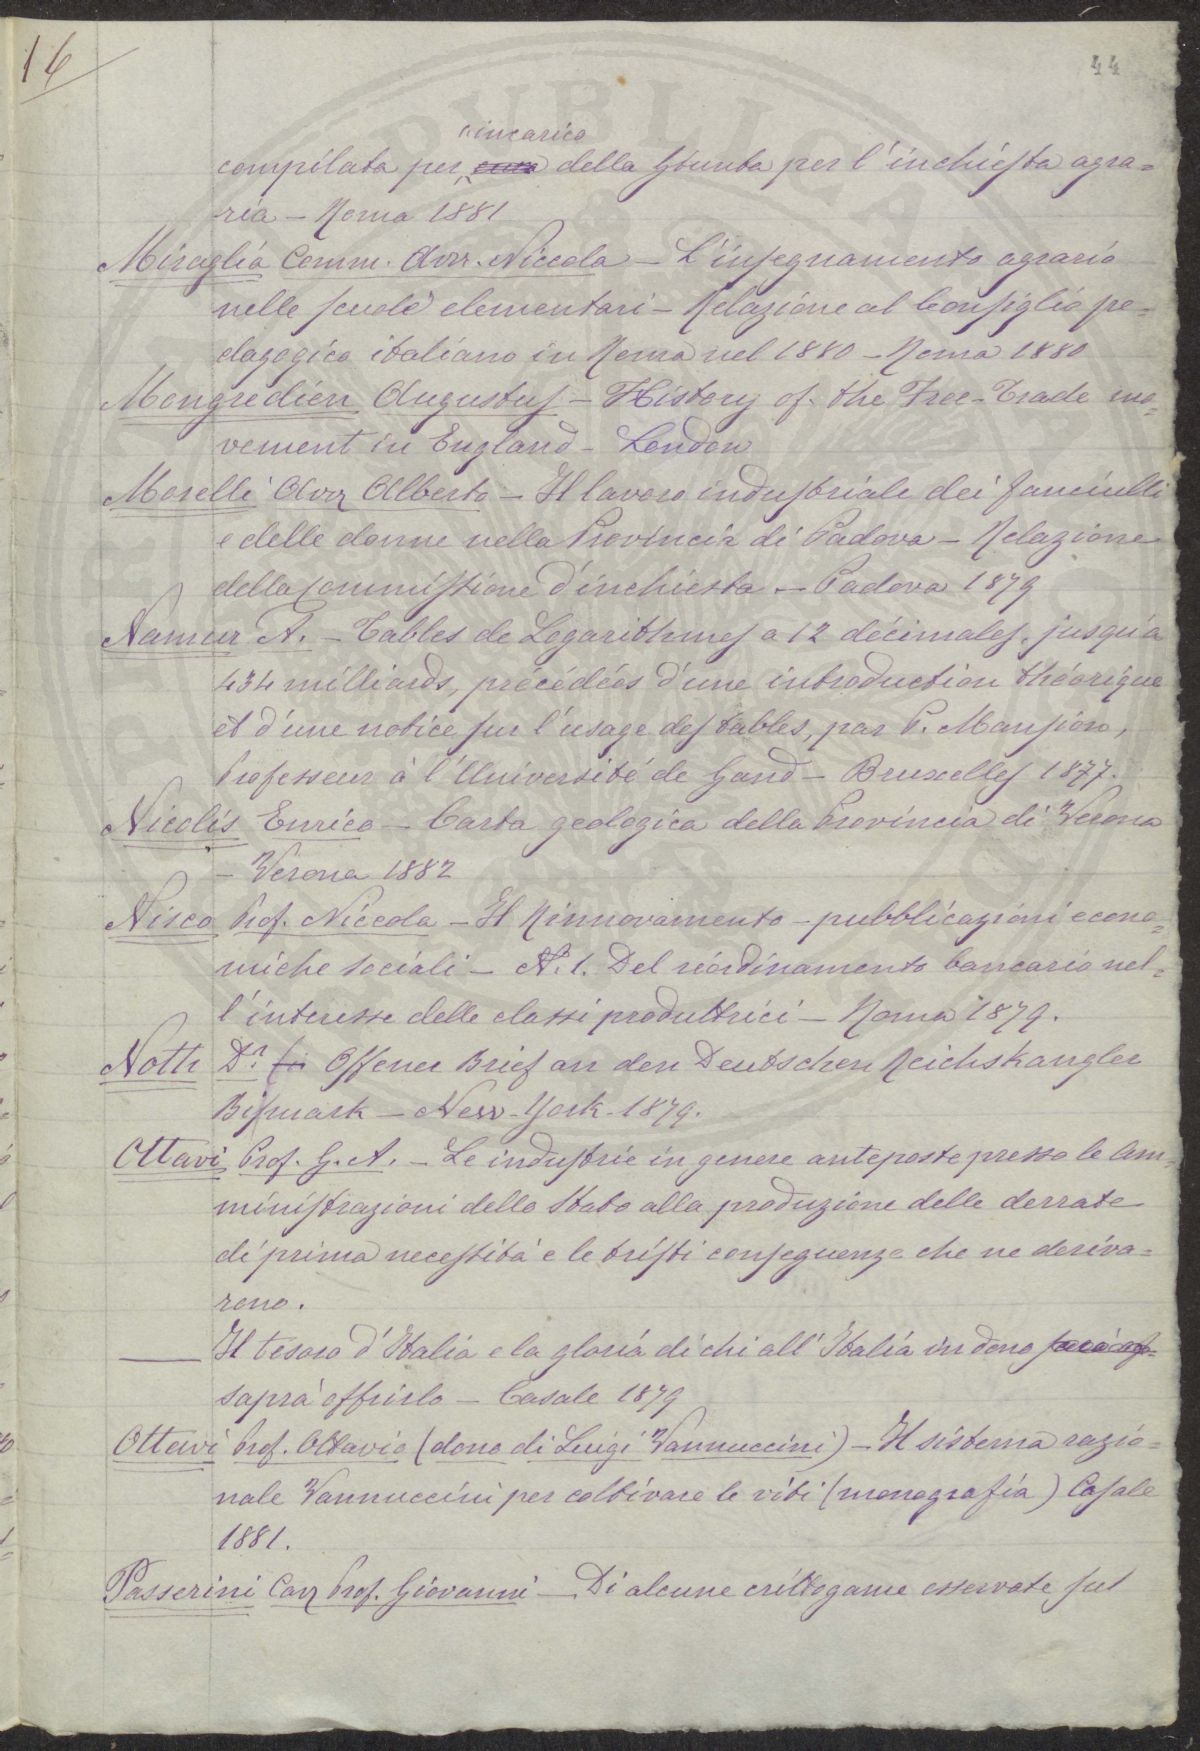 16
44
incarico
compilata per cura della Giunta per l'inchiesta agra=
ria – Roma 1881
Miraglia Comm. Avv. Niccola – L'insegnamento agrario
nelle scuole elementari – Relazione al Consiglio pe=
dagogico italiano in Roma nel 1880 – Roma 1880
Mongredien Augustus – History of the Free-Trade mo=
vement in England – London
Morelli Avv Alberto – Il lavoro industriale dei fanciulli
e delle donne nella Provincia di Padova – Relazione
della Commissione d'inchiesta. – Padova 1879
Namur A. – Tables de Logarithmes a 12 décimales, jusqu'a
434 milliards, précédées d'une introduction théorique
et d'une notice sur l'usage des tables, par P. Mansion,
Professeur à l'Université de Gand – Bruxelles 1877.
Nicolis Enrico – Carta geologica della Provincia di Verona
– Verona 1882
Nisco Prof. Niccola – Il Rinnovamento – pubblicazioni econo=
miche sociali – N. 1. Del riordinamento bancario nel=
l'interesse delle classi produttrici – Roma 1879.
Noth Dr. Offener Brief an den Deutschen Reichskangler
Bismark – New-York-1879.
Ottavi Prof. G. A. – Le industrie in genere anteposte presso le Am=
ministrazioni dello Stato alla produzione delle derrate
di prima necessità e le tristi conseguenze che ne deriva=
rono.
— Il tesoro d'Italia e la gloria di chi all'Italia in dono
saprà offrirlo – Casale 1879
Ottavi Prof. Ottavio (dono di Luigi Vannuccini) – Il sistema razio=
nale Vannuccini per coltivare le viti (monografia) Casale
1881.
Passerini Cav Prof. Giovanni – Di alcune crittogame osservate sul
PUBLICA